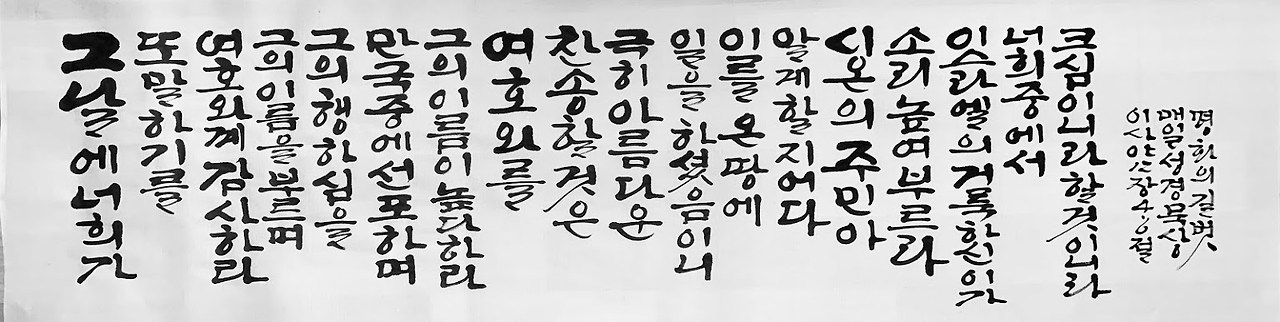 그날에너희가
또말하기를
여호와께감사하라
그의이름을부르며
그의행하심을
만국중에선포하며
그의이름이높다하라
여호와를
찬송할것은
극히아름다운
일을하셨음이니
이를온땅에
알게할지어다
시온의주민아
소리높여부르라
이스라엘의거룩하신이가
너희중에서
크심이니라할것이니라
이사야12장4-6절
매일성경묵상
평화의길벗